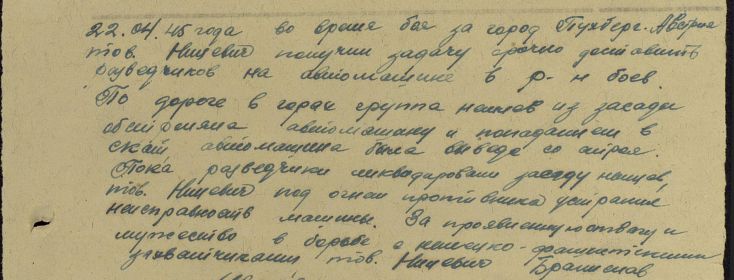 22.04.45 года во время боя за город Пухберг. Австрия
тов. Ницевич получил задачу срочно доставить
разведчиков на автомашине в р-н боев.
По дороге в горах группа немцев из засады
обстреляла автомашину и попаданием в
скат автомашина была выведе со строя.
Пока разведчики ликвидировали засаду немцев,
тов. Ницевич под огнем противника устранил
неисправность машины. За проявленную отвагу и
мужество в борьбе с немецко-фашистскими
захватчиками тов. Ницевич